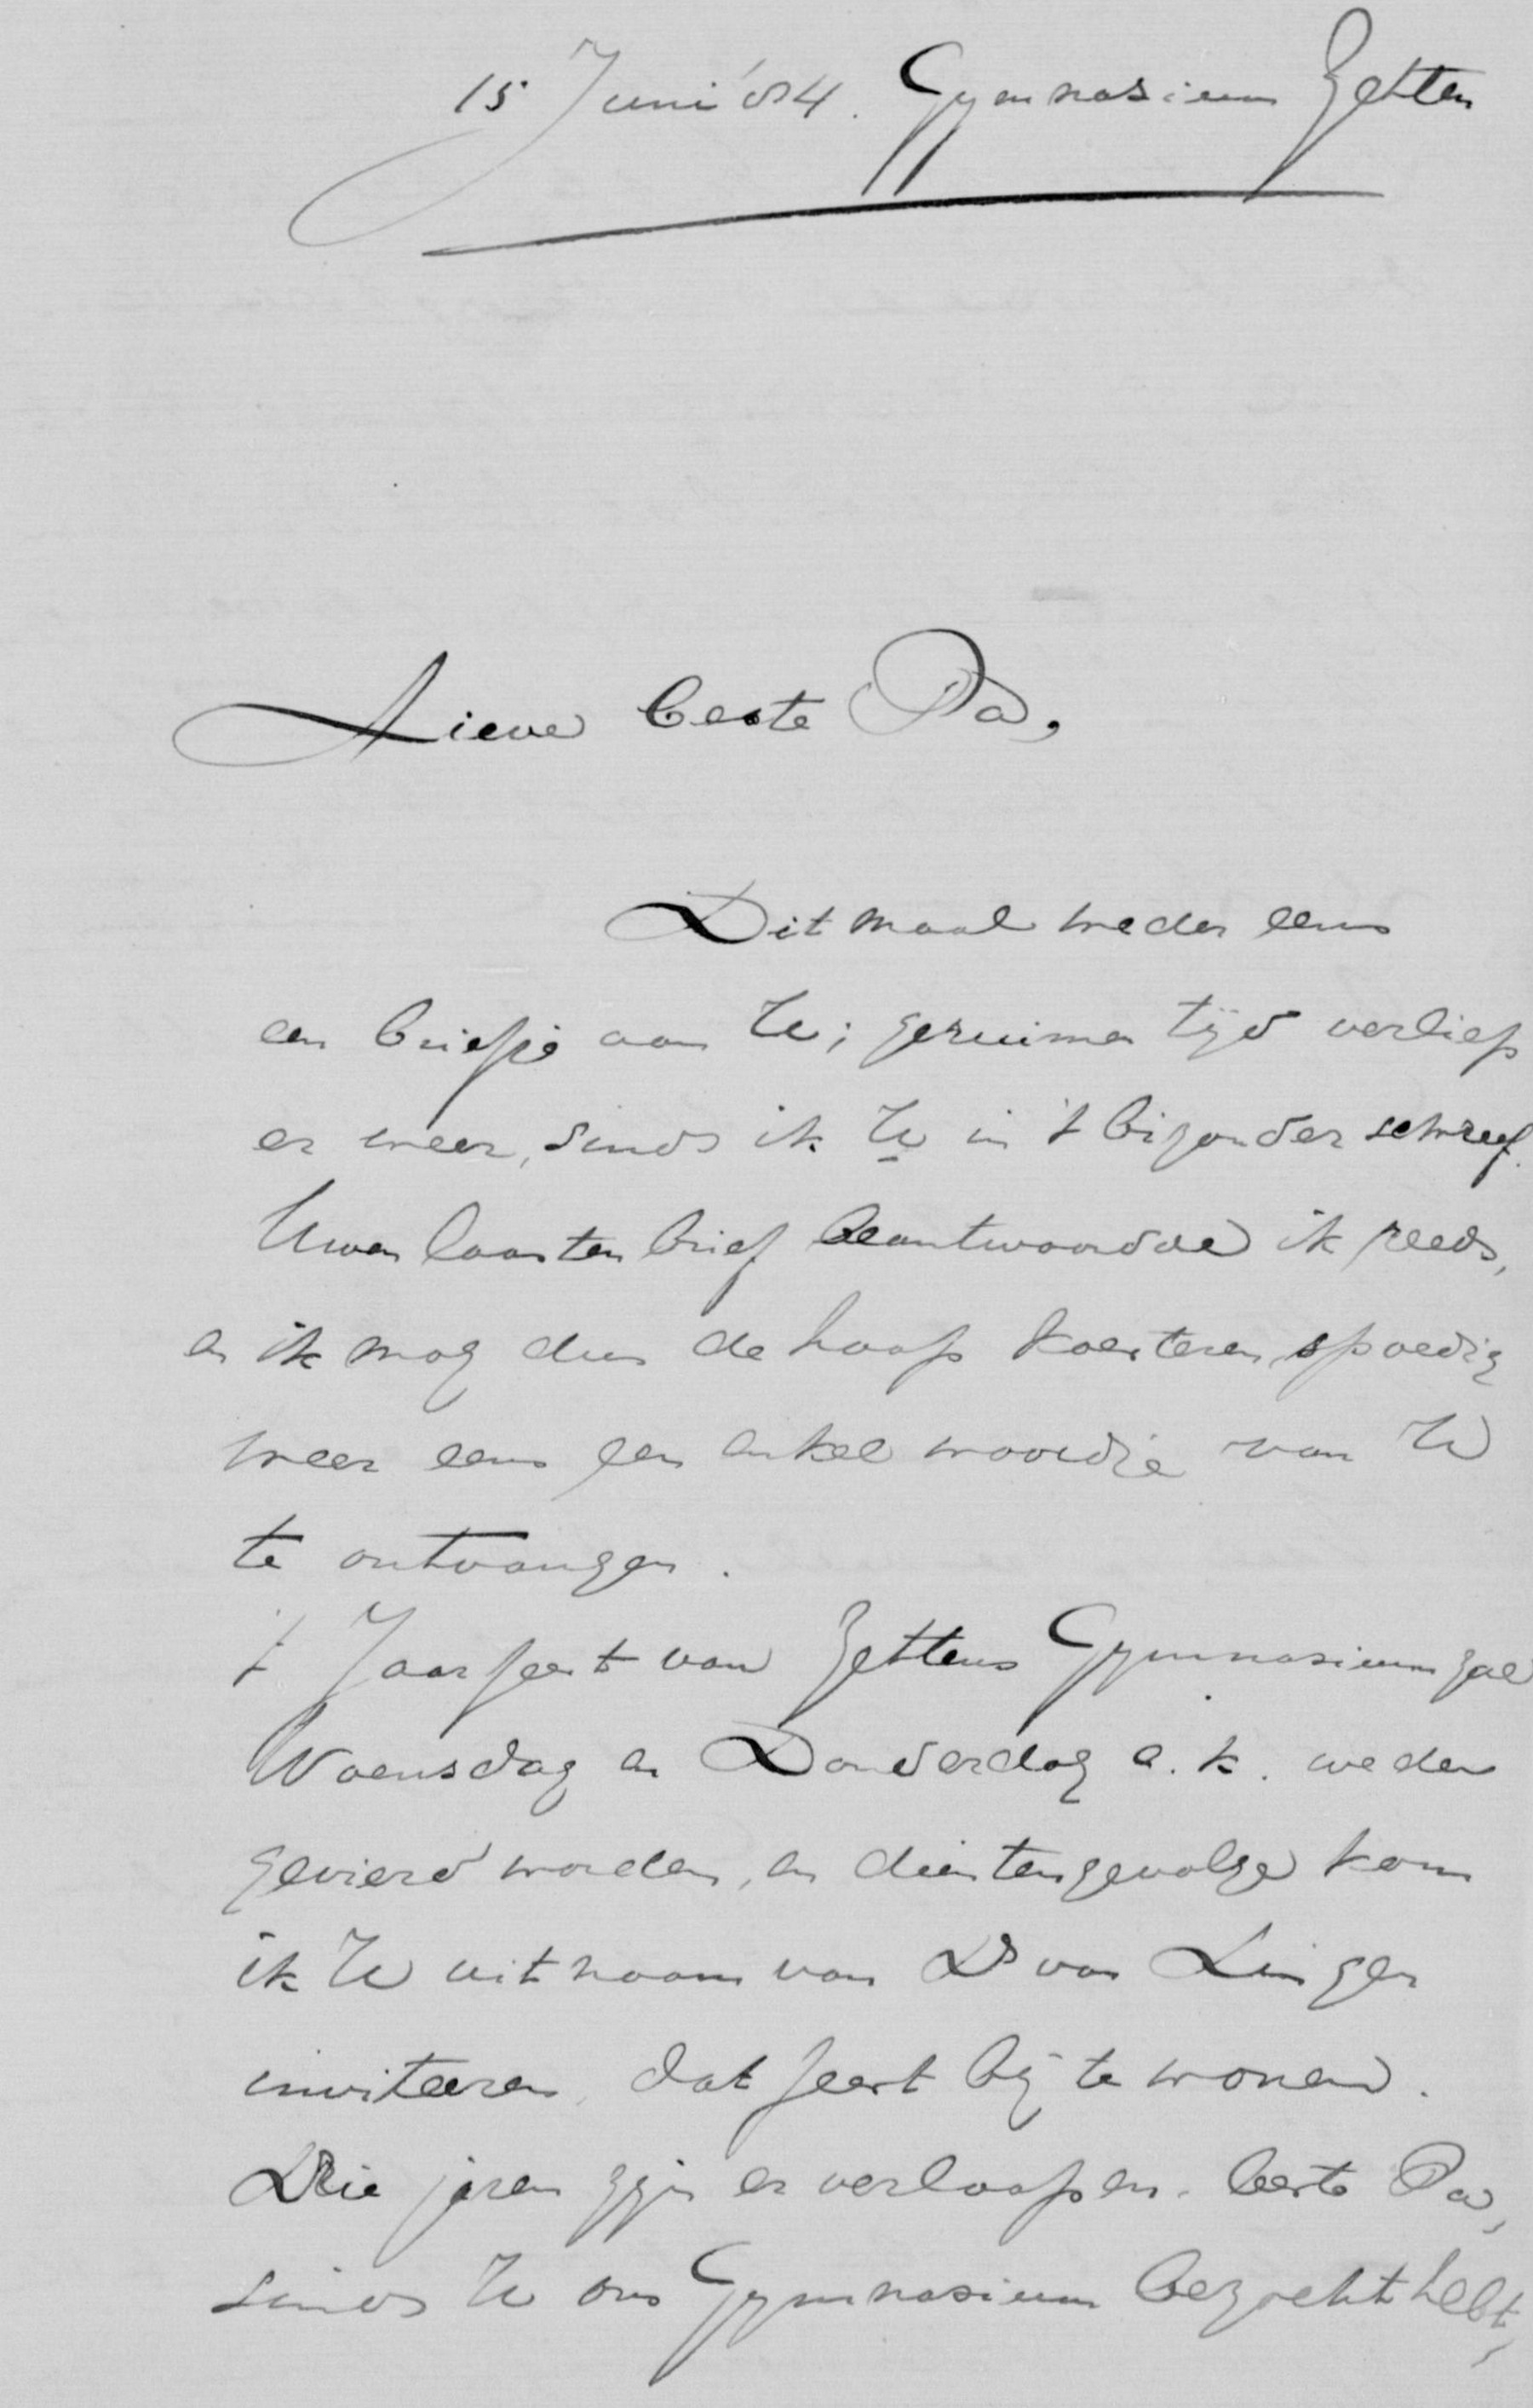 15 Juni '84. Gymnasium Zetten
Lieve beste Pa,
Ditmaal weder eens
een briefje aan U; geruimen tijd verliep
er weer, sinds ik U in 't bizonder schreef.
Uwen laasten brief beantwoordde ik reeds,
en ik mag dus de hoop koesteren, spoedig
weer eens een enkel woordje van U
te ontvangen.
't Jaarfeest van Zettens Gymnasium zal
Woensdag en Donderdag a.k. weder
gevierd worden, en dientengevolge kom
ik U uit naam van Ds van Lingen
inviteeren, dat feest bij te wonen.
Drie jaren zijn er verloopen, beste Pa,
sinds U ons Gymnasium bezocht hebt,